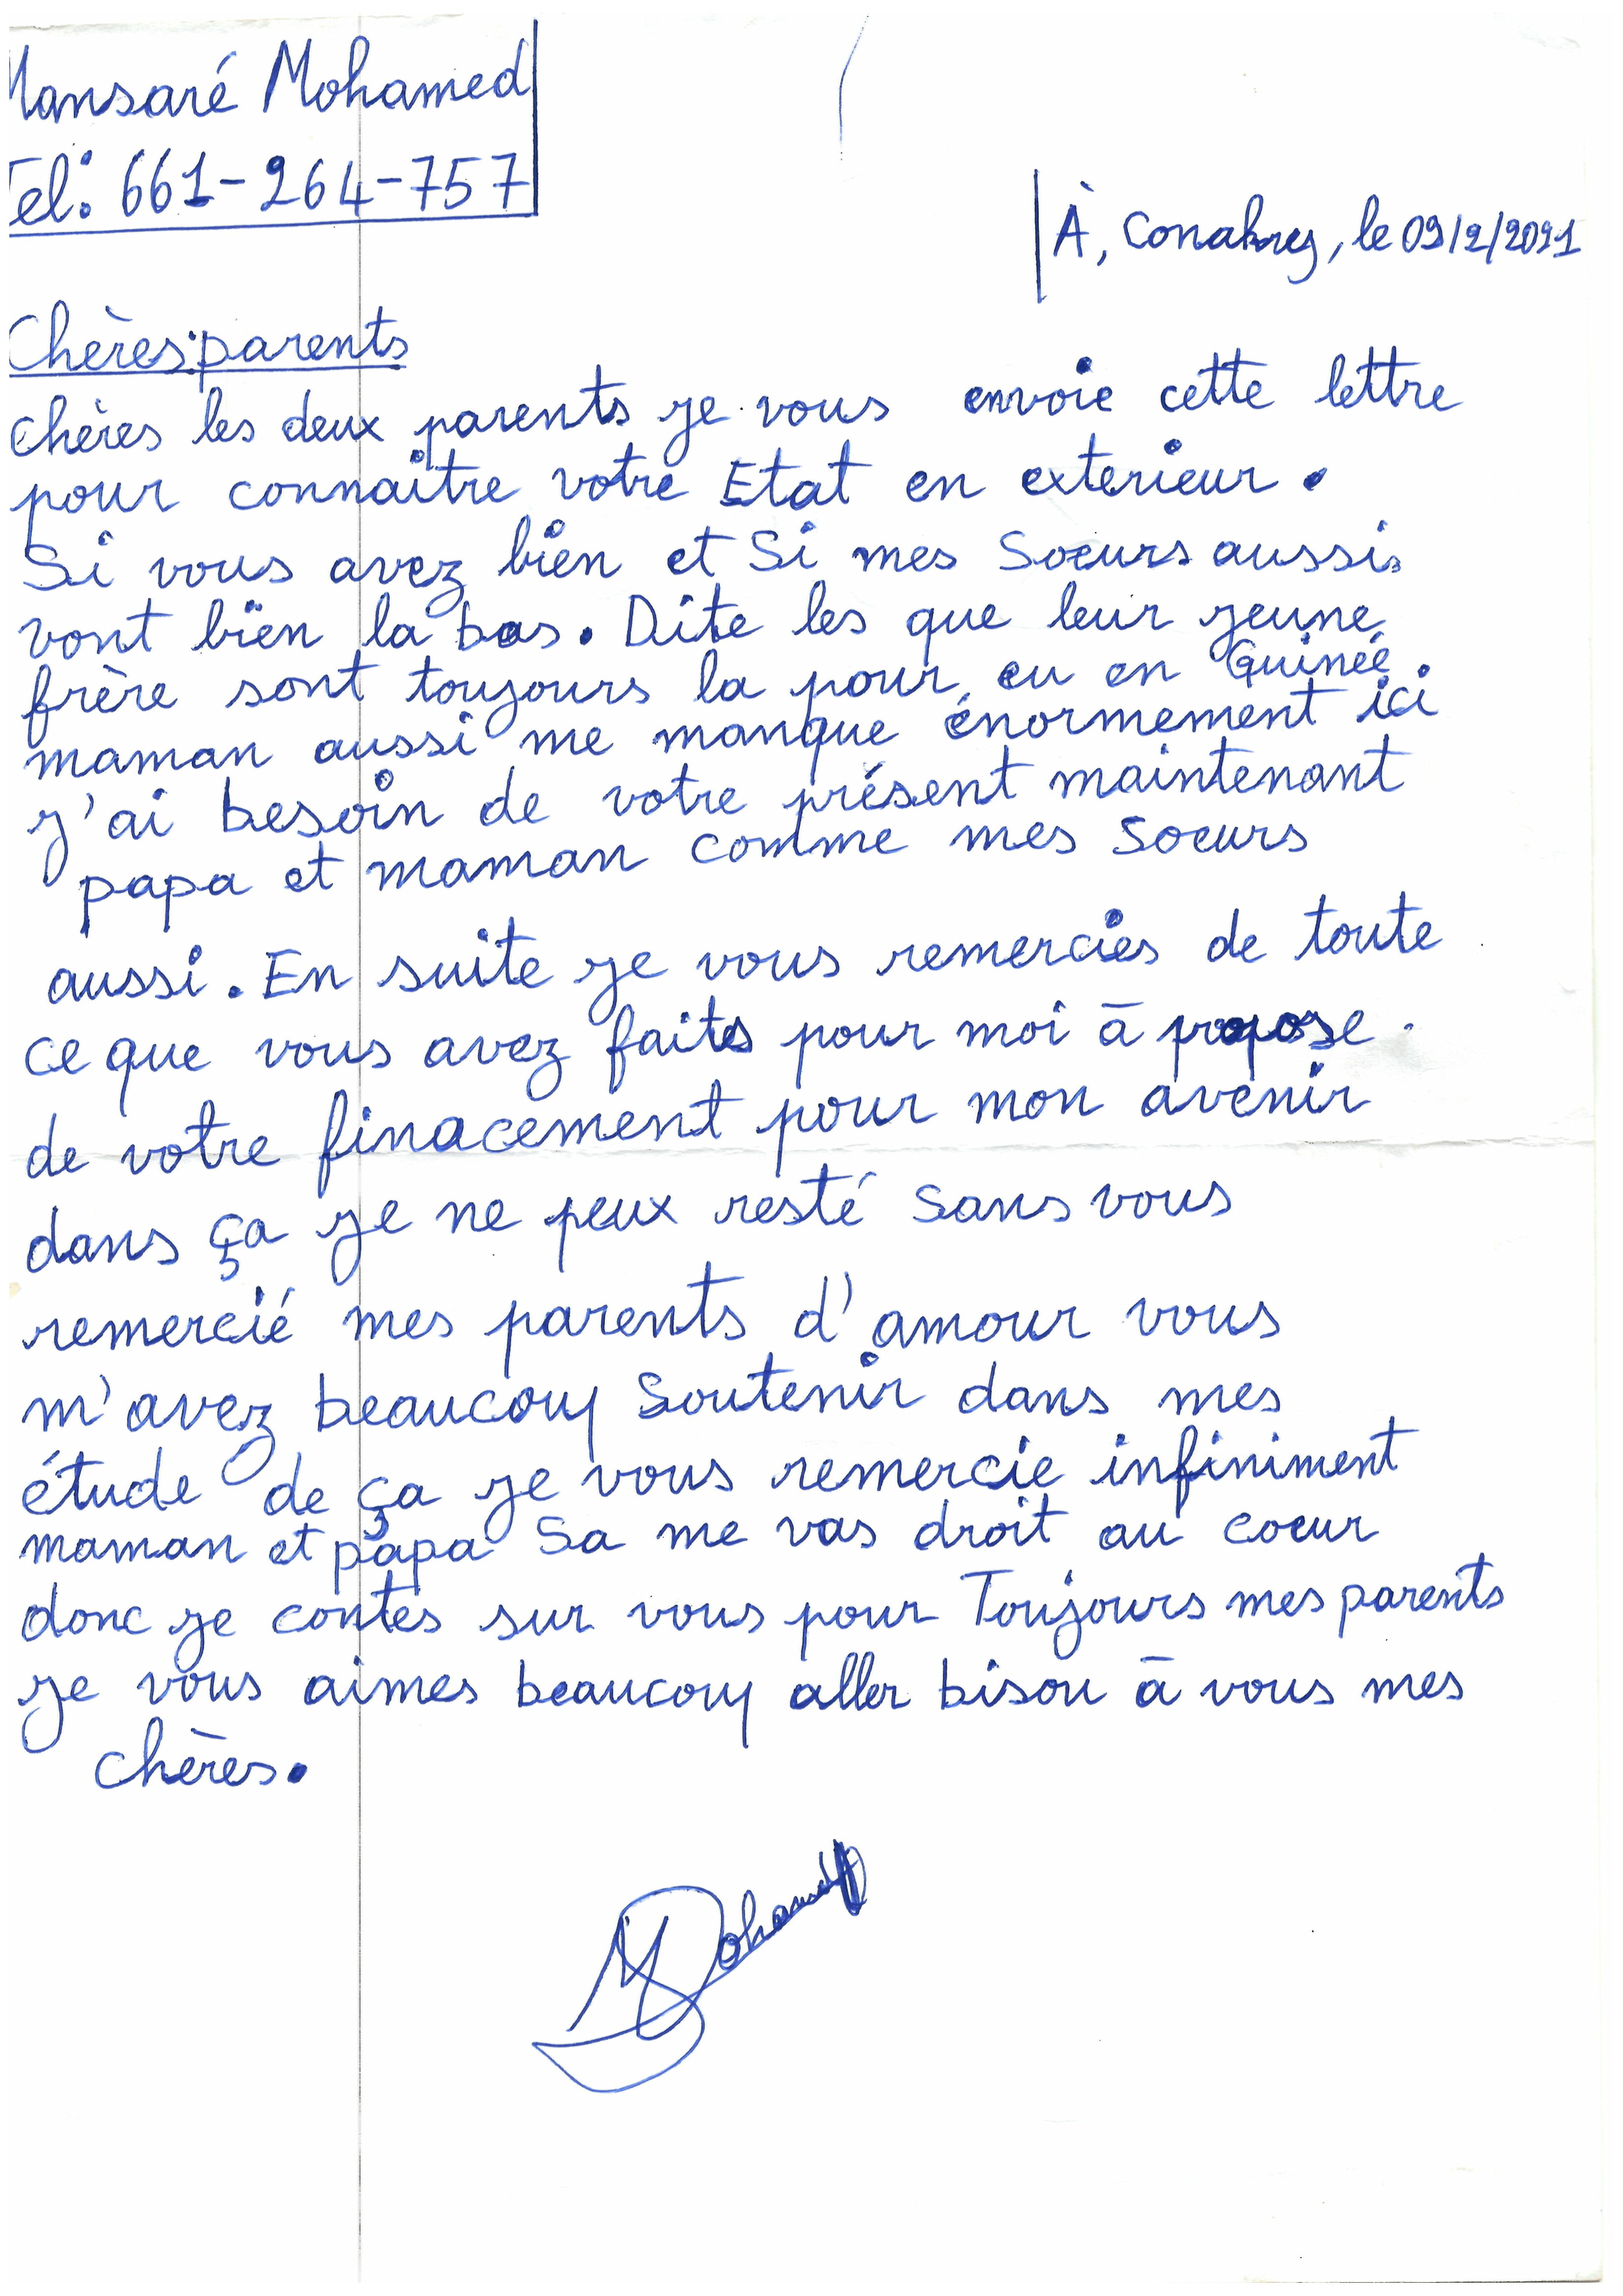 Mansaré Mohamed
Tel: 661-264-757
À, Conakry, le 09/2/2021
Chères parents
chères les deux parents je vous envoie cette lettre
pour connaitre votre Etat en exterieur.
Si vous avez bien et Si mes Soeurs aussi
vont bien la bas. Dite les que leur jeune
frère sont toujours la pour eu en Guinée.
maman aussi me manque énormement ici
j'ai besoin de votre présent maintenant
papa et maman comme mes Soeurs
aussi. En suite je vous remercies de toute
ce que vous avez faits pour moi à propose
de votre finacement pour mon avenir
dans ça je ne peux resté sans vous
remercié mes parents d'amour vous
m'avez beaucoup Soutenir dans mes
étude de ça je vous remercie infiniment
maman et papa Sa me vas droit au coeur
donc je contes sur vous pour Toujours mes parents
je vous aimes beaucoup aller bisou à vous mes
chères.
Mohamed